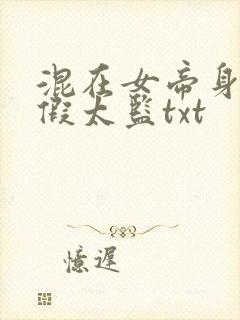 混在女帝身
假太监txt
憶遲